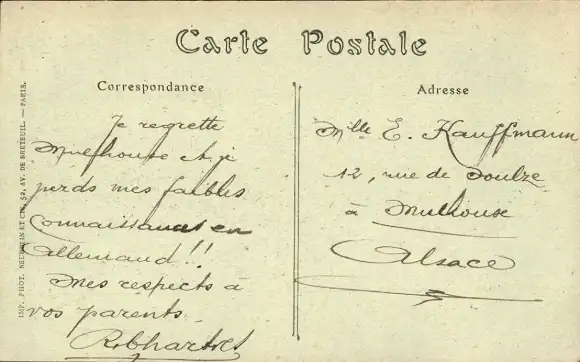 Carte Postale
Correspondance
Je regrette
Mulhouse et je
perds mes faibles
connaissances en
allemand!!
Mes respects à
vos parents
Adresse
Mlle E. Kauffmann
12, rue de Soultz
à Mulhouse
Alsace
IMP. PHOT. NEURDEIN ET CIE, 52, AV. DE BRETEUIL. — PARIS.